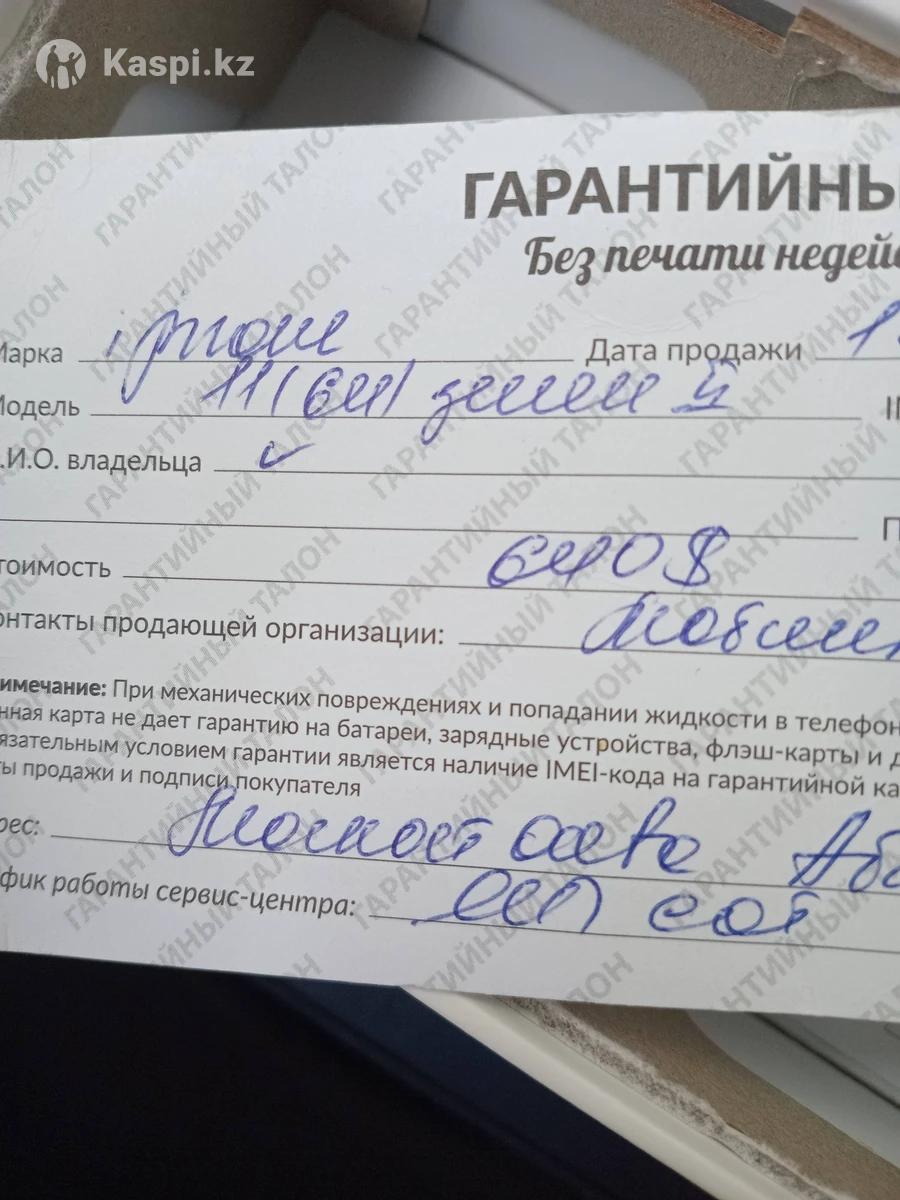 Kaspi.kz
ГАРАНТИЙНЫ
Без печати недейс
Марка iphone Дата продажи 1
Модель 11 (64) зелен й I
.И.О. владельца
П
тоимость 640 $
онтакты продающей организации: Мобилен
имечание: При механических повреждениях и попадании жидкости в телефон
нная карта не дает гарантию на батареи, зарядные устройства, флэш-карты и д
язательным условием гарантии является наличие IMEI-кода на гарантийной ка
ты продажи и подписи покупателя
рес:
фик работы сервис-центра: сот
ГАРАНТИЙНЫЙ ТАЛОН